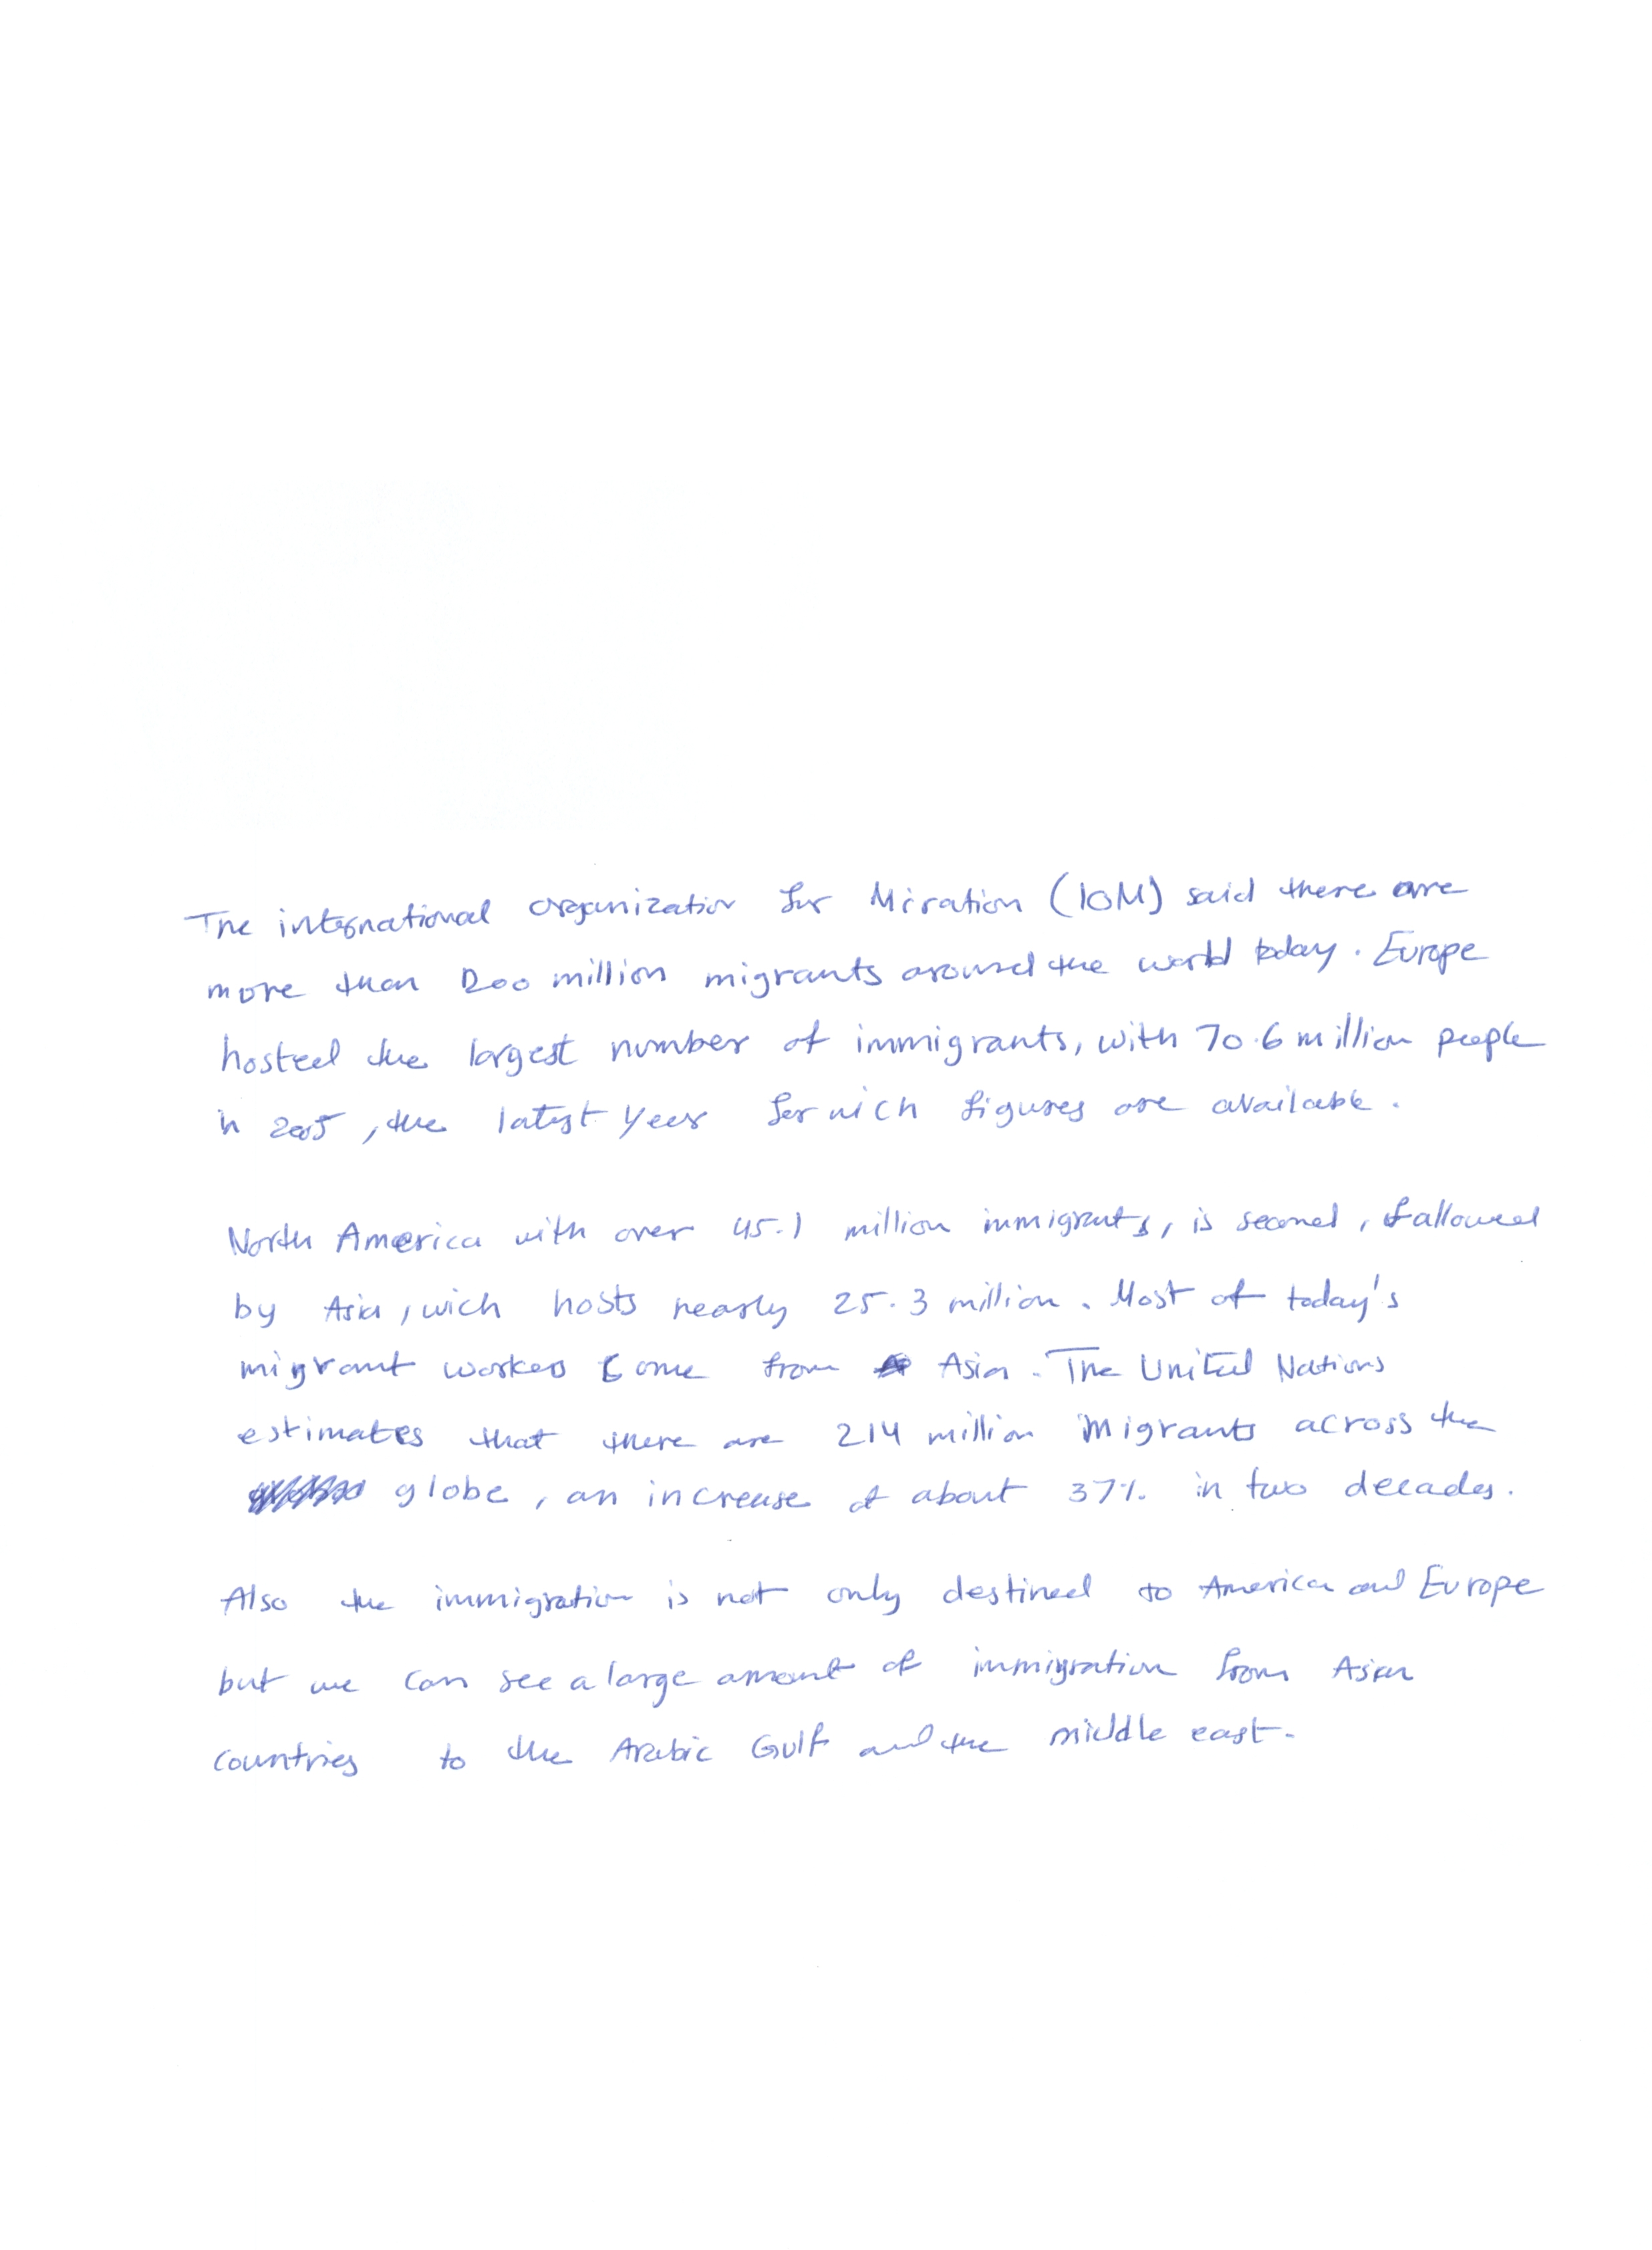 The international organization for Miration (IOM) said there are
more than 200 million migrants around the world today. Europe
hosted the largest number of immigrants, with 70.6 million people
in 2005, the latest year for wich figures are available.
North America with over 45.1 million immigrants, is second, fallowed
by Asia, wich hosts nearly 25.3 million. Most of today's
migrant workers come from Asia. The United Nations
estimates that there are 214 million migrants across the
globe, an increase of about 37% in two decades.
Also the immigration is not only destined to America and Europe
but we can see a large amount of immigration from Asian
countries to the Arabic Gulf and the middle east.